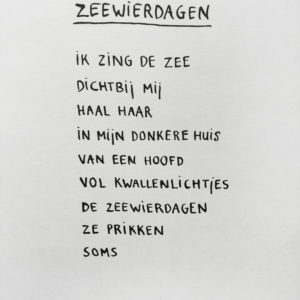 ZEEWIERDAGEN
iK ZiNG DE ZEE
DiCHTBij Mij
HAAL HAAR
iN MijN DONKERE HUiS
VAN EEN HOOFD
VOL KWALLENLiCHTjES
DE ZEEWiERDAGEN
ZE PRiKKEN
SOMS